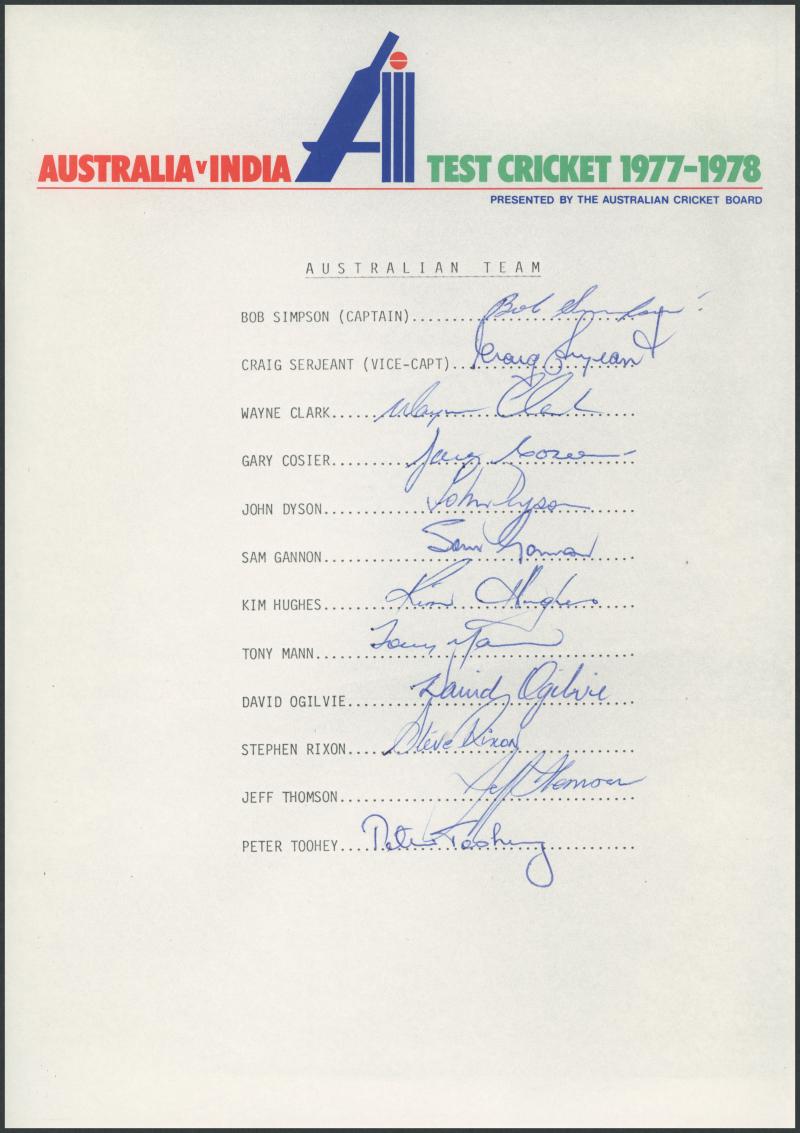 AUSTRALIA v INDIA AI TEST CRICKET 1977-1978
PRESENTED BY THE AUSTRALIAN CRICKET BOARD
AUSTRALIAN TEAM
BOB SIMPSON (CAPTAIN).......... Bob Simpson
CRAIG SERJEANT (VICE-CAPT).. Craig Serjeant
WAYNE CLARK..... Wayne Clark
GARY COSIER.......... Gary Cosier
JOHN DYSON............. John Dyson
SAM GANNON............. Sam Gannon
KIM HUGHES........ Kim Hughes
TONY MANN....... Tony Mann
DAVID OGILVIE......... David Ogilvie
STEPHEN RIXON..... Steve Rixon
JEFF THOMSON............... Jeff Thomson
PETER TOOHEY.... Peter Toohey